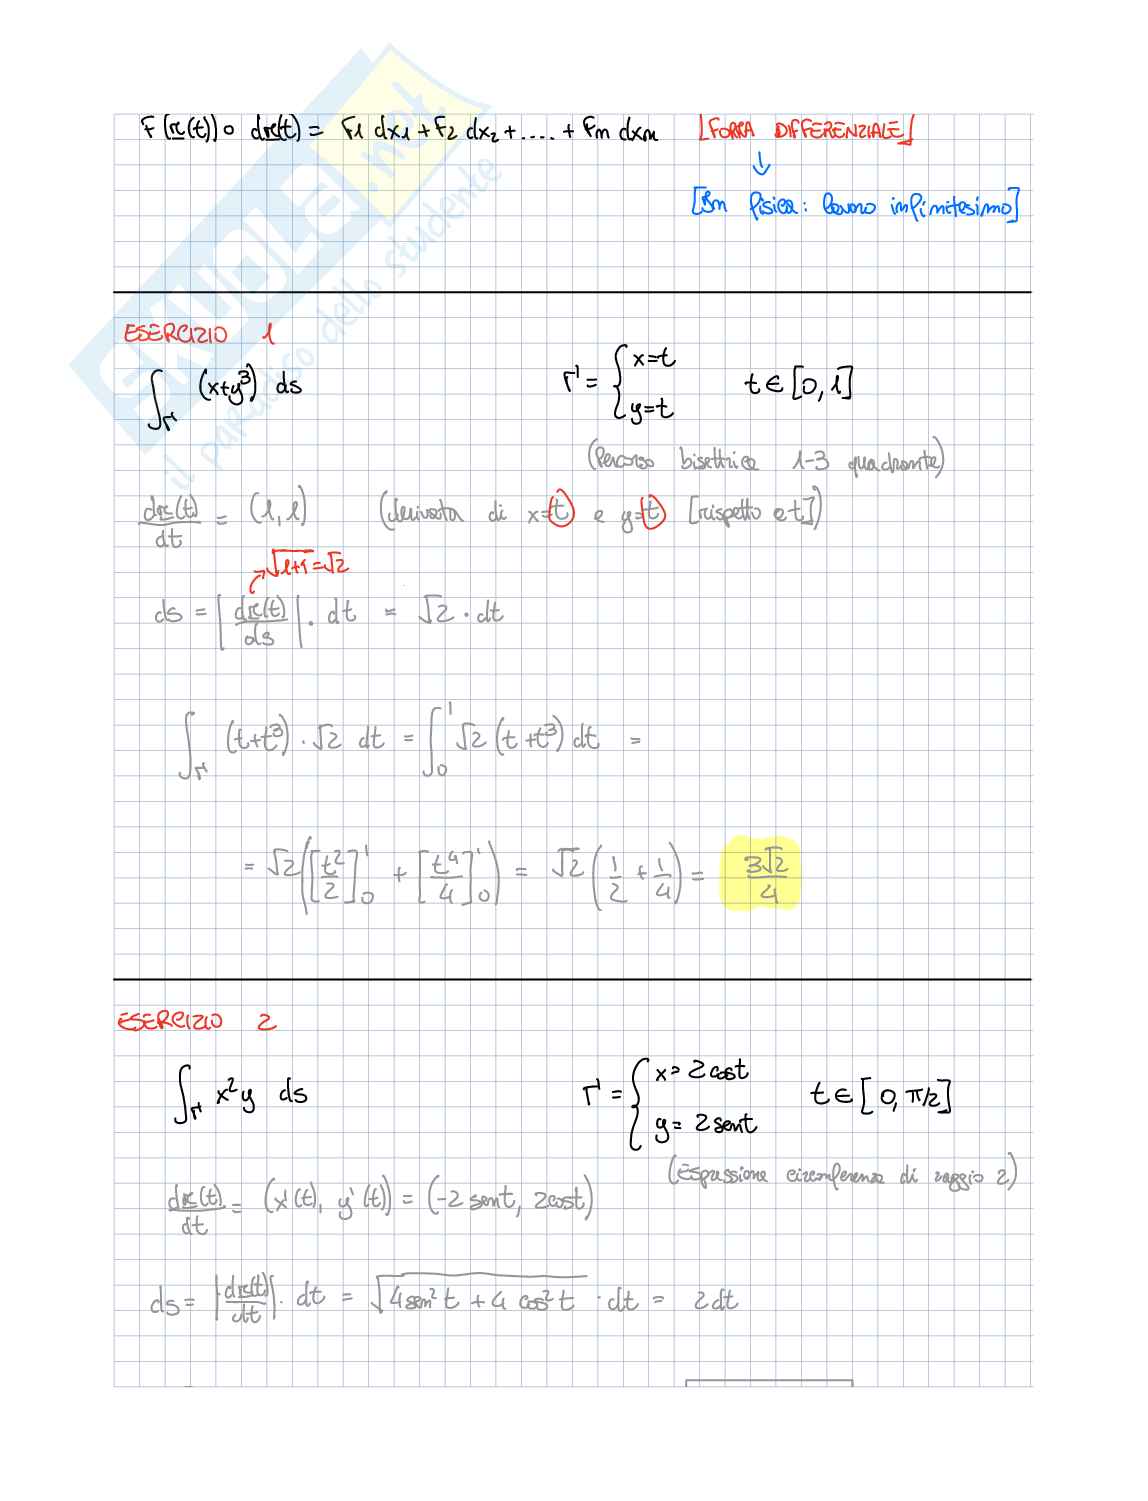 F(r(t)) o dr(t) = F1 dx1 + F2 dx2 + .... + Fn dxn [FORMA DIFFERENZIALE]
↓
[In fisica: lavoro infinitesimo]
SKUOLA.net
il paradiso dello studente
ESERCIZIO 1
∫Γ (x+y³) ds Γ = { x=t y=t t ∈ [0, 1]
(Percorso bisettrice 1-3 quadrante)
dr(t)/dt = (1, 1) (derivata di x=t e y=t [rispetto a t])
√1+1 = √2
ds = |dr(t)/ds| · dt = √2 · dt
∫Γ (t+t³) · √2 dt = ∫₀¹ √2 (t+t³) dt =
= √2 ([t²/2]₀¹ + [t⁴/4]₀¹) = √2 (1/2 + 1/4) = 3√2/4
ESERCIZIO 2
∫Γ x²y ds Γ = { x = 2cost y = 2sent t ∈ [0, π/2]
(Espressione circonferenza di raggio 2)
dr(t)/dt = (x'(t), y'(t)) = (-2 sent, 2cost)
ds = |dr(t)/dt| · dt = √4sen²t + 4 cos²t · dt = 2dt